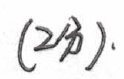 (2分).